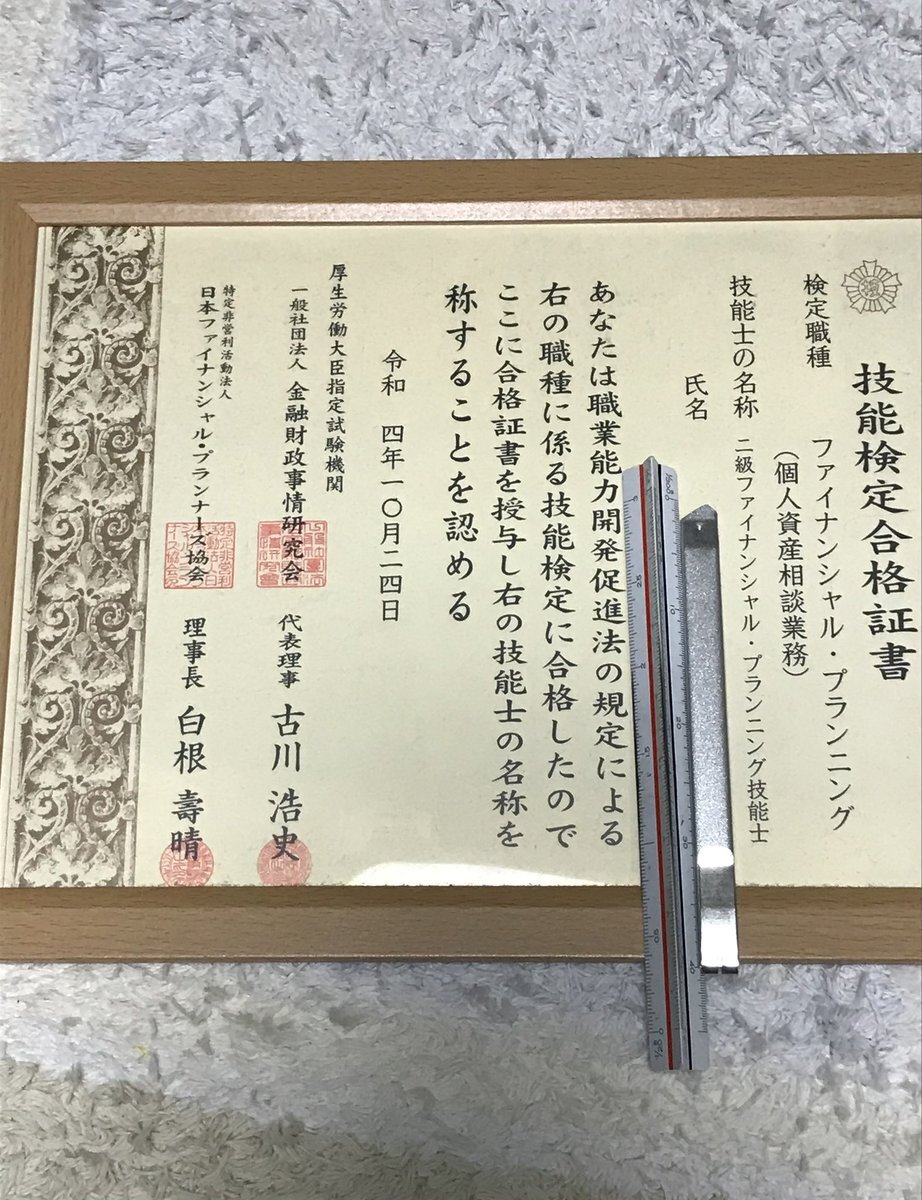 技能検定合格証書
検定職種
ファイナンシャル・プランニング
(個人資産相談業務)
技能士の名称
二級ファイナンシャル・プランニング技能士
氏名
あなたは職業能力開発促進法の規定による
右の職種に係る技能検定に合格したので
ここに合格証書を授与し右の技能士の名称を
称することを認める
令和 四年一〇月二四日
厚生労働大臣指定試験機関
一般社団法人 金融財政事情研究会
代表理事 古川 浩史
特定非営利活動法人
日本ファイナンシャル・プランナーズ協会
理事長 白根 壽晴